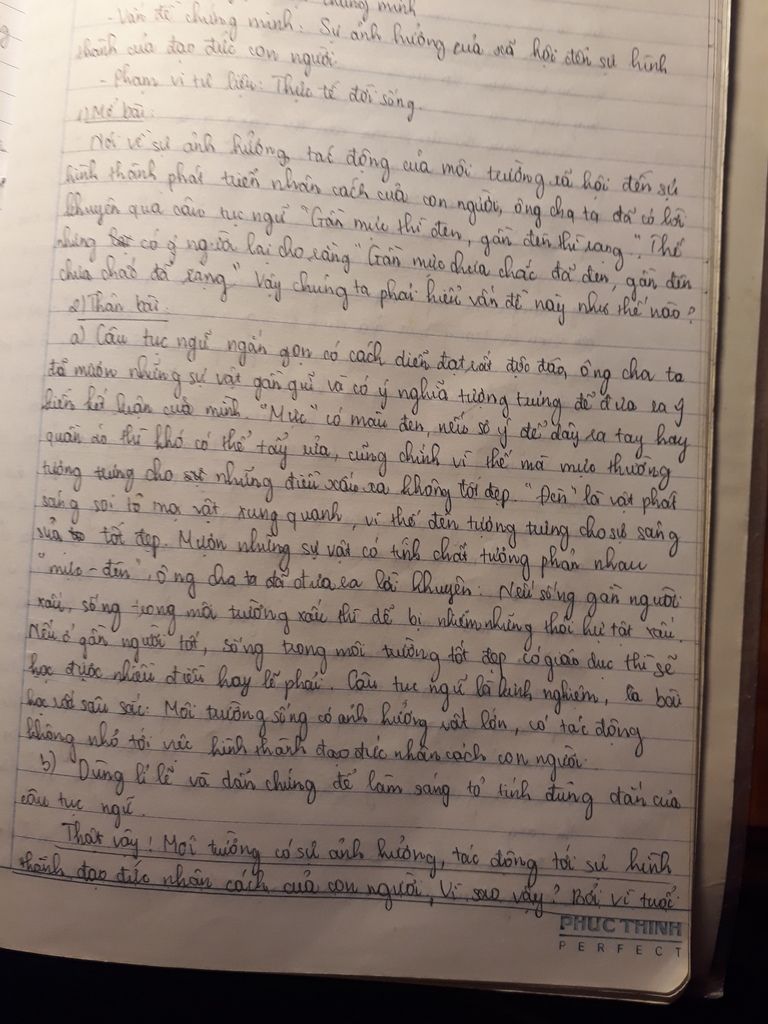 chứng minh
- Vấn đề chứng minh: Sự ảnh hưởng của xã hội đến sự hình
thành của đạo đức con người.
- Phạm vi tư liệu: Thực tế đời sống.
1) Mở bài:
Nói về sự ảnh hưởng, tác động của môi trường xã hội đến sự
hình thành phát triển nhân cách của con người, ông cha ta đã có lời
khuyên qua câu tục ngữ "Gần mực thì đen, gần đèn thì rạng". Thế
nhưng có ý người lại cho rằng "Gần mực chưa chắc đã đen, gần đèn
chưa chắc đã rạng" Vậy chúng ta phải hiểu vấn đề này như thế nào?
2) Thân bài:
a) Câu tục ngữ ngắn gọn có cách diễn đạt rất độc đáo, ông cha ta
đã mượn những sự vật gần gũi và có ý nghĩa tượng trưng để đưa ra ý
kiến kết luận của mình. "Mực" có màu đen, nếu sơ ý để dây ra tay hay
quần áo thì khó có thể tẩy rửa, cũng chính vì thế mà mực thường
tượng trưng cho những điều xấu xa không tốt đẹp. "Đèn" là vật phát
sáng soi tỏ mọi vật xung quanh, vì thế đèn tượng trưng cho sự sáng
sủa tốt đẹp. Mượn những sự vật có tính chất tương phản nhau
"mực - đèn", ông cha ta đã đưa ra lời khuyên: Nếu sống gần người
xấu, sống trong môi trường xấu thì dễ bị nhiễm những thói hư tật xấu.
Nếu ở gần người tốt, sống trong môi trường tốt đẹp có giáo dục thì sẽ
học được nhiều điều hay lẽ phải. Câu tục ngữ là kinh nghiệm, là bài
học sâu sắc: Môi trường sống có ảnh hưởng rất lớn, có tác động
không nhỏ tới việc hình thành đạo đức nhân cách con người.
b) Dùng lí lẽ và dẫn chứng để làm sáng tỏ tính đúng đắn của
câu tục ngữ.
Thật vậy! Môi trường có sự ảnh hưởng, tác động tới sự hình
thành đạo đức nhân cách của con người, Vì sao vậy? Bởi vì tuổi
PHUC THINH
PERFECT